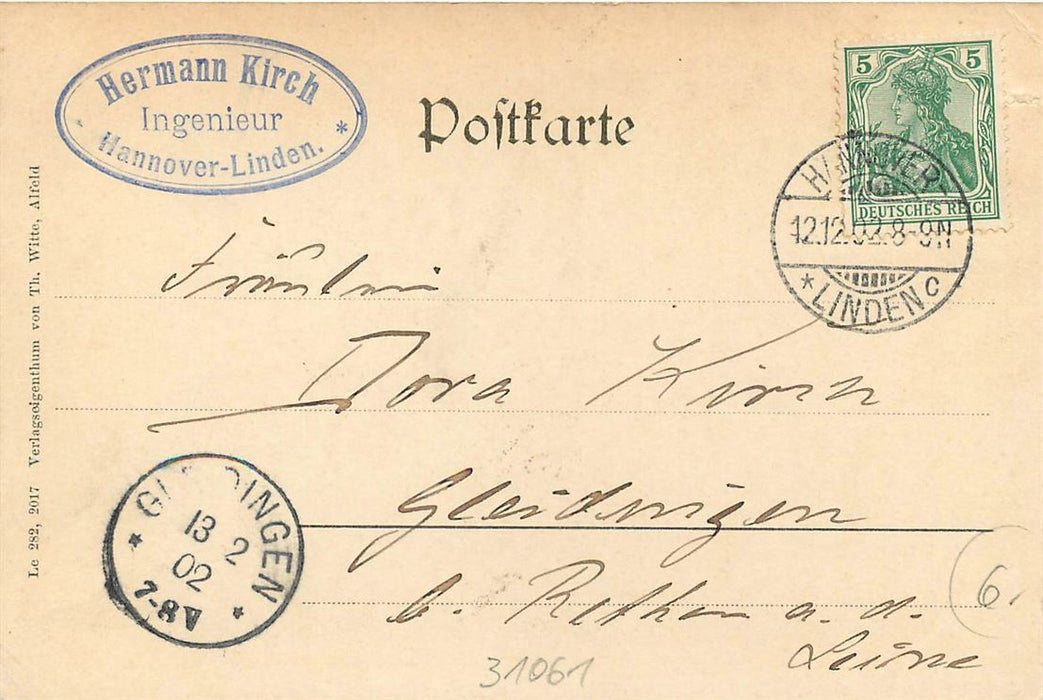 Hermann Kirch
Ingenieur
* Hannover-Linden. *
Postkarte
5 5
DEUTSCHES REICH
HANNOVER
12.12.02.8-9N
* LINDEN c
Fräulein
Dora Kirch
Gleidingen
b. Rethen a. d.
Leine
GLEIDINGEN
13 2
02
7-8V
* *
Le 282, 2017 Verlagseigenthum von Th. Witte, Alfeld
6.
31061